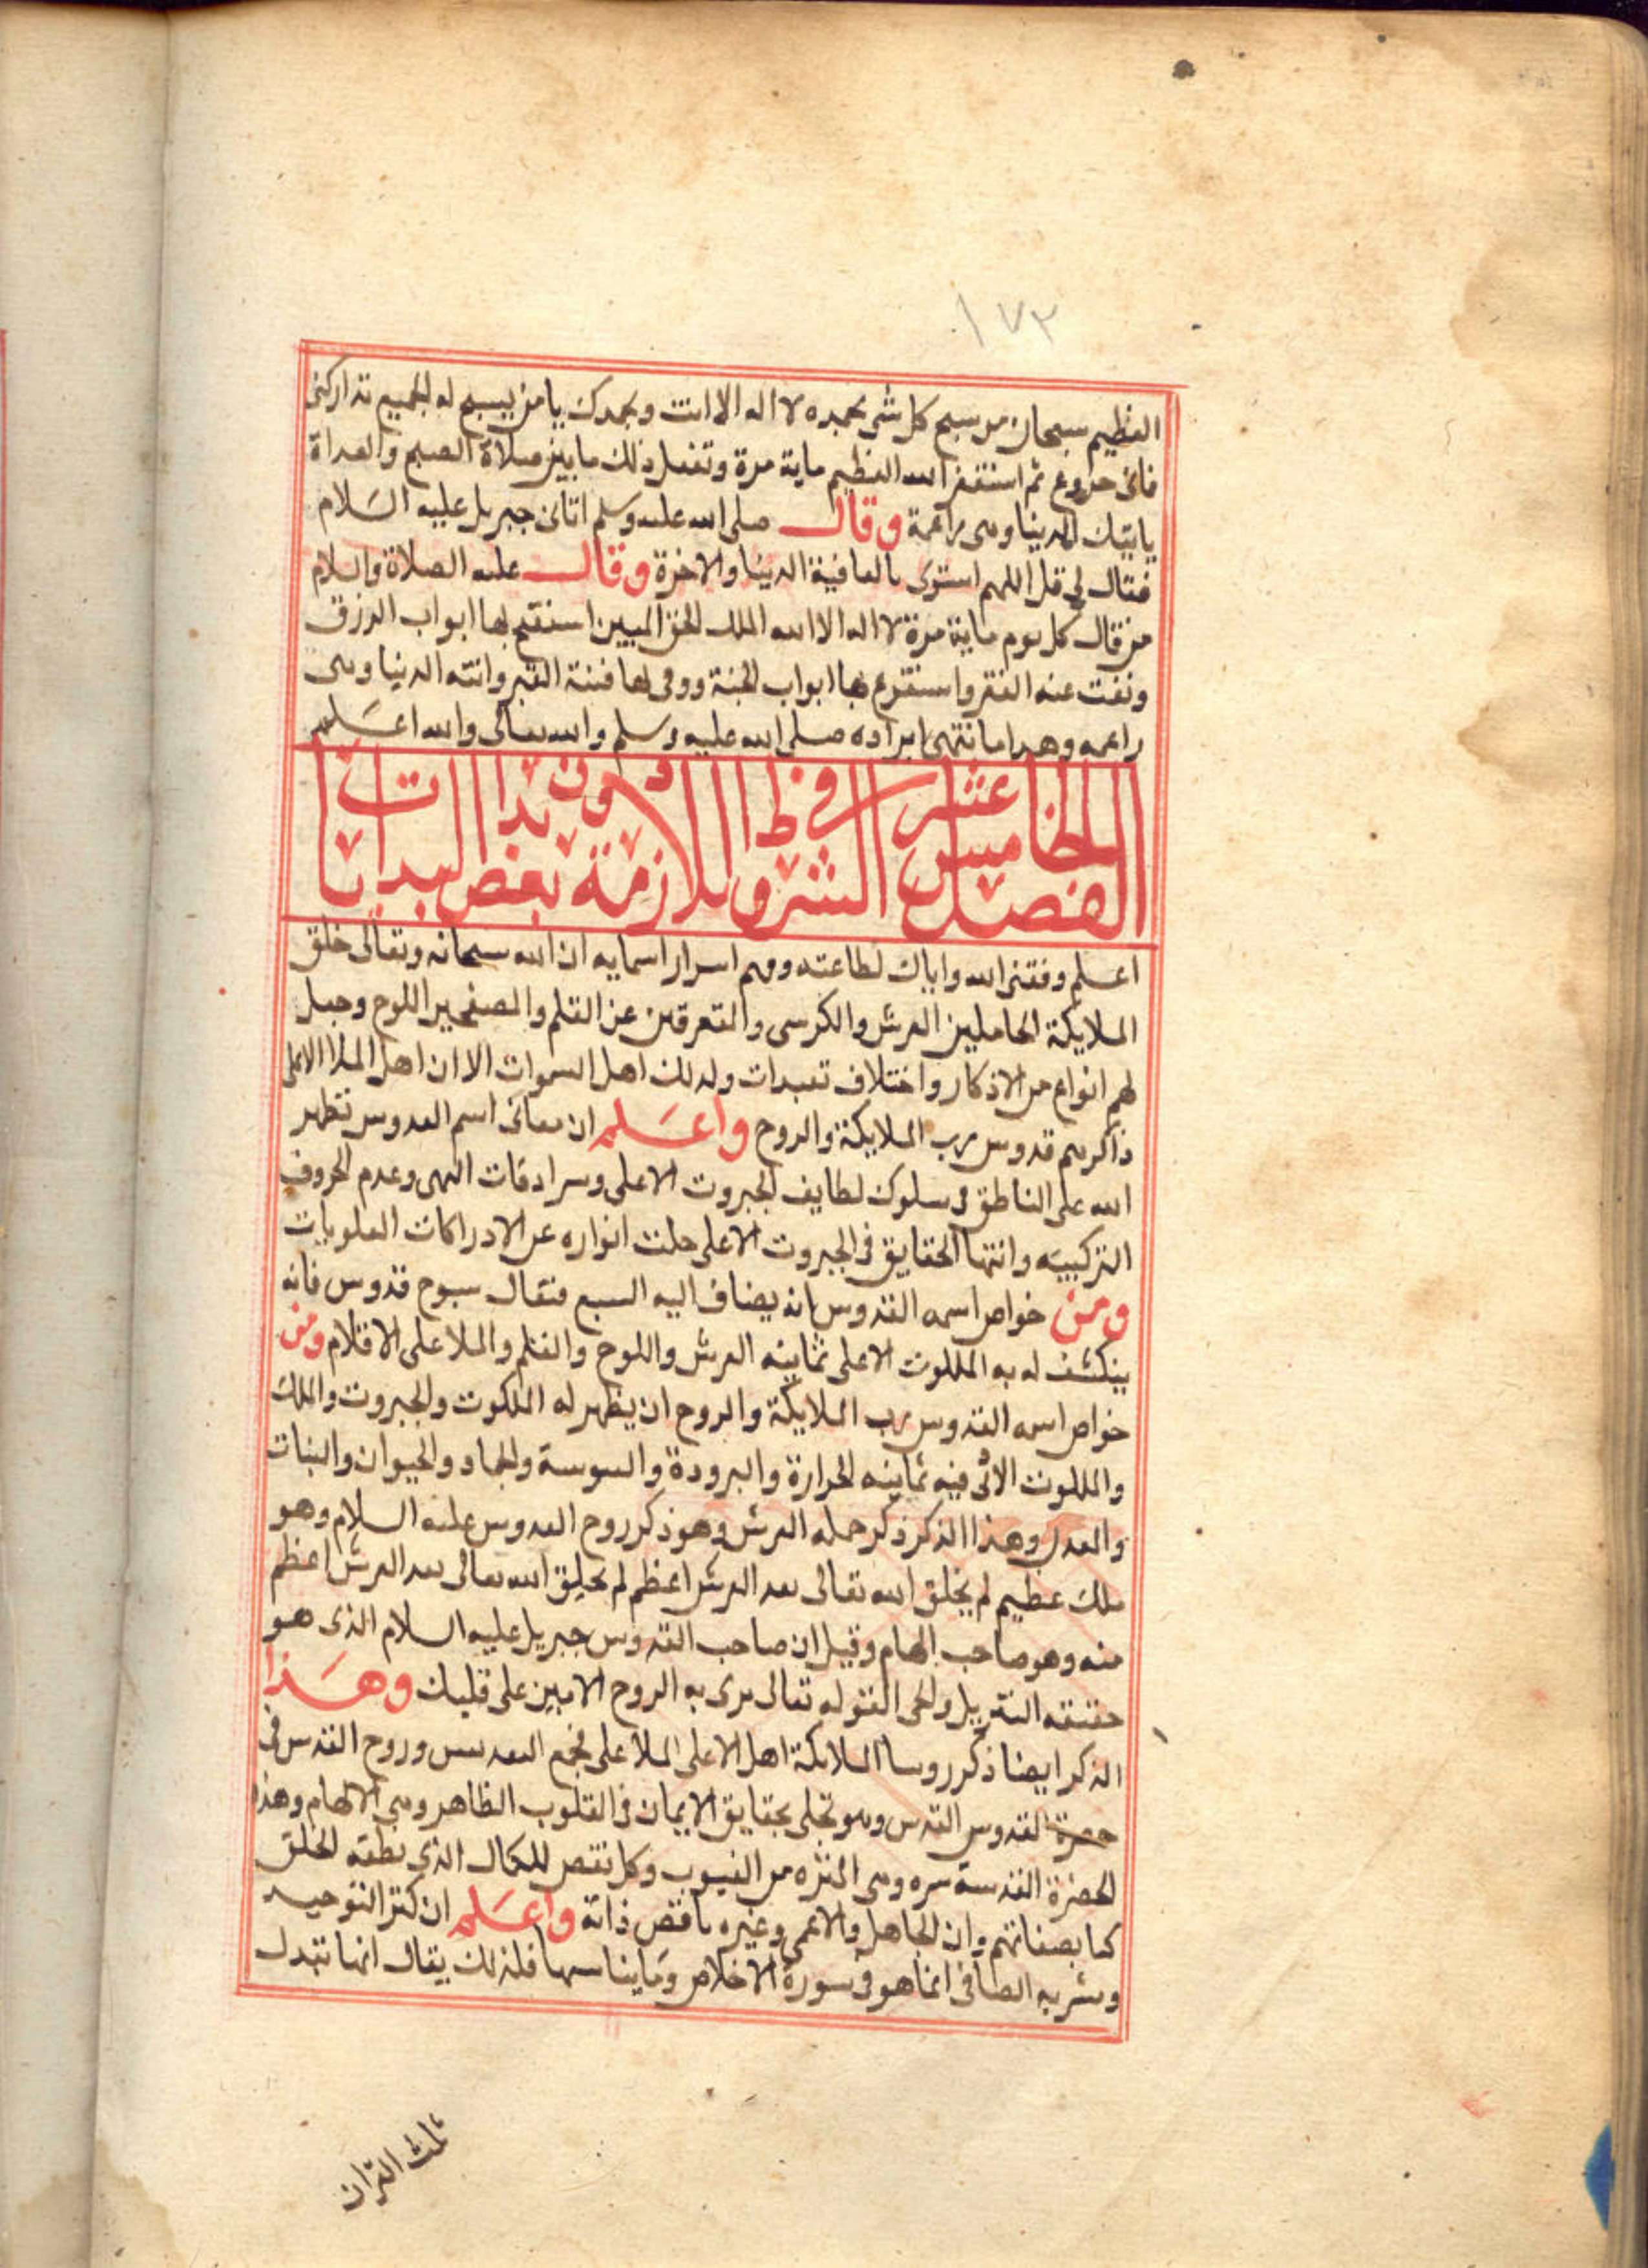 ١٧٣
العظيم سبحان من سبح كل شى بحمده لا اله الا انت وبحمدك يا من يسبح له الجميع تداركنى
فانى جزوع ثم استغفر الله العظيم ماية مرة وتفعل ذلك ما بين صلاة الصبح والغداة
ياتيك الدنيا وهى راغمة وقال صلى الله عليه وسلم اتانى جبريل عليه السلام
فقال لى قل اللهم استرنى بالعافية الدنيا والاخرة وقال عليه الصلاة والسلام
من قال كل يوم ماية مرة لا اله الا الله الملك الحق المبين استفتح بها ابواب الرزق
ونفت عنه الفقر واستقرع بها ابواب الجنة ووقى بها فتنة القبر واتته الدنيا وهى
راغمه وهذا ما انتهى ايراده صلى الله عليه وسلم والله تعالى والله اعلم
الفصل الخامس عشر فى الشروط اللازمة دون بعض بدا البدايات
اعلم وفقنى الله واياك لطاعته وفهم اسرار اسمايه ان الله سبحانه وتعالى خلق
الملايكة الحاملين العرش والكرسى والمتعرقين عن القلم والمصفحين اللوح وجعل
لهم انواع من الاذكار واختلاف تعبدات ولذلك اهل السموات الا ان اهل الملا الاعلى
ذاكرهم قدوس رب الملايكة والروح واعلم ان معانى اسم القدوس تظهر
الله على الناطق فى سلوك لطايف الجبروت الاعلى وسرادقات البهى وعدم الحروف
التركيبيه وانتها الحقايق فى الجبروت الاعلى جلت انواره عن الادراكات العلويات
ومن خواص اسمه القدوس انه يضاف اليه السبع فتقال سبوح قدوس فانه
ينكشف له به الملكوت الاعلى ثمانيه العرش واللوح والقلم والملا على الاقلام ومن
خواص اسمه القدوس رب الملايكة والروح ان يظهر له الملكوت والجبروت والملك
والملكوت الاتى فيه ثمانيه الحرارة والبرودة واليبوسة والجماد والحيوان والنبات
والعدل وهذا الذكر ذكر حملة العرش وهو ذكر روح القدوس عليه السلام وهو
ملك عظيم لم يخلق الله تعالى بعد العرش اعظم لم يخلق الله تعالى بعد العرش اعظم
منه وهو صاحب الهام وقيل ان صاحب القدوس جبريل عليه السلام الذى هو
حقيقه التنزيل والحى القوله تعالى نزل به الروح الامين على قلبك وهذا
الذكر ايضا ذكر روسا الملايكة اهل الاعلى الملا على مجمع التقديس وروح القدس فى
حضرة القدوس القدس وهو تجلى بحقايق الايمان فى القلوب الظاهر وهى الالهام وهذه
الحضرة القدسية سره وهى المنزه من العيوب وكل نقص للكمال الذى نطقه الخلق
كما بصفاتهم وان الجاهل والاعمى وغيره ناقص ذاته واعلم ان كنز التوحيد
وشربه الصافى انما هو فى سورة الاخلاص وما يناسبها فلذلك يقال انها تعدل
ثلث القران